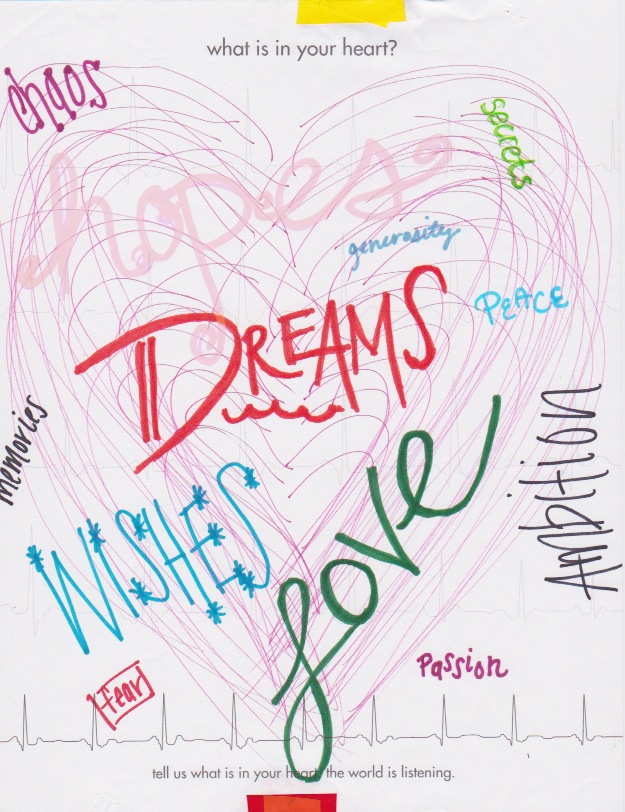 what is in your heart?
chaos
secrets
hopes
generosity
PEACE
DREAMS
memories
AmbItIon
love
WISHES
Passion
Fear
tell us what is in your heart, the world is listening.